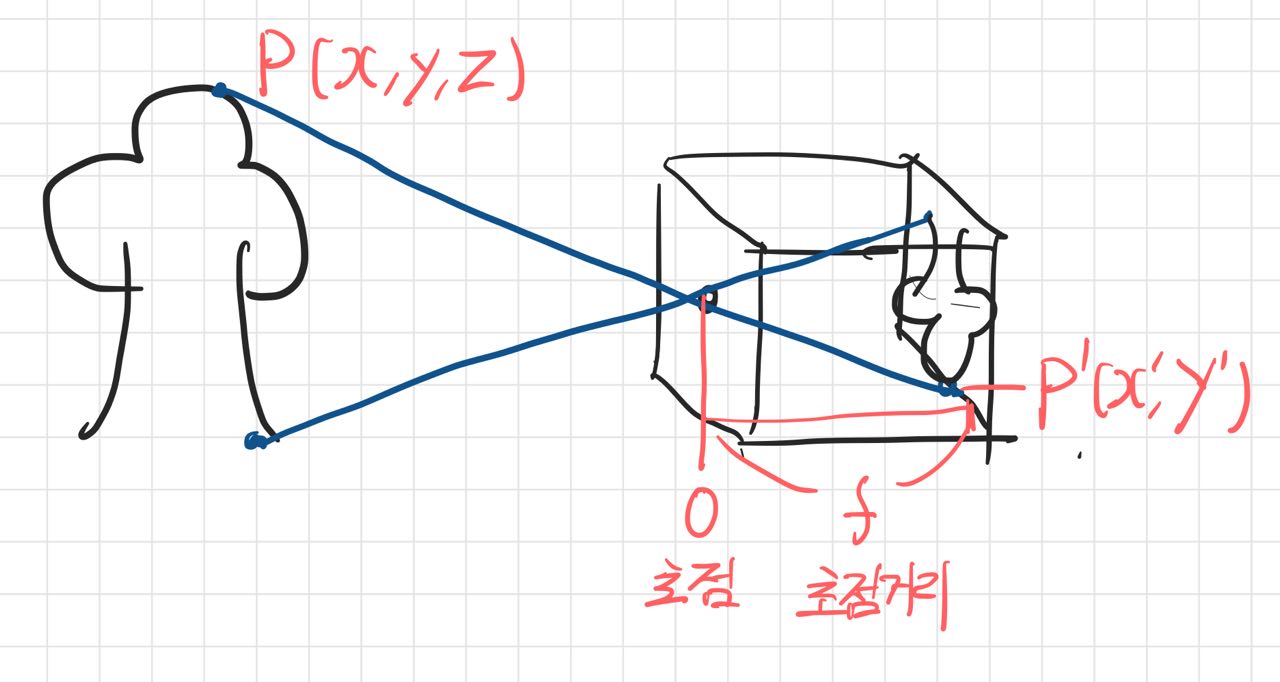 P(x,y,z)
P'(x',y')
O
f
초점
초점거리